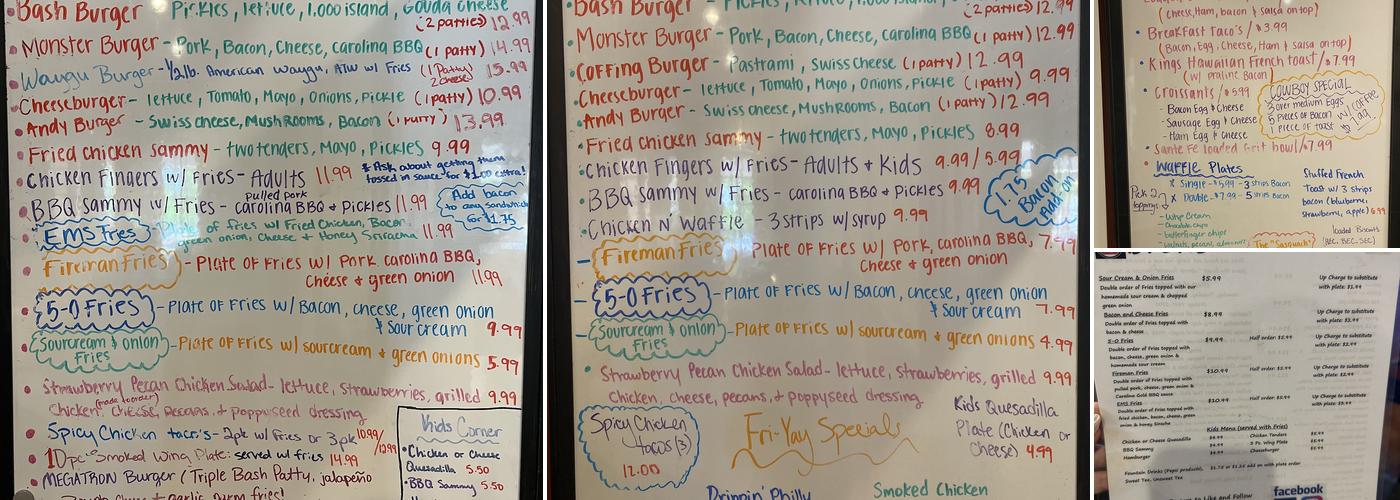 Bash Burger - Pickles, lettuce, 1,000 island, Gouda cheese
(2 patties) 12.99
Monster Burger - Pork, Bacon, Cheese, Carolina BBQ (1 patty) 14.99
Waygu Burger - 1/2 lb. American Waygu, ATW w/ Fries (1 Patty 2 cheese) 15.99
Cheeseburger - lettuce, Tomato, Mayo, Onions, Pickle (1 patty) 10.99
Andy Burger - Swiss cheese, Mushrooms, Bacon (1 patty) 13.99
Fried Chicken Sammy - two tenders, Mayo, Pickles 9.99
* Ask about getting them tossed in sauce for $1.00 extra!
Chicken Fingers w/ Fries - Adults 11.99
pulled pork
BBQ Sammy w/ Fries - Carolina BBQ & Pickles 11.99
Add bacon
to any sandwich
for $1.75
EMS Fries - Plate of fries w/ Fried Chicken, Bacon,
green onion, Cheese & Honey Sriracha 11.99
Fireman Fries - Plate of Fries w/ Pork Carolina BBQ,
Cheese & green onion 11.99
5-0 Fries - Plate of Fries w/ Bacon, cheese, green onion
& Sour cream 9.99
Sourcream & onion Fries - Plate of Fries w/ sourcream & green onions 5.99
Strawberry Pecan Chicken Salad - lettuce, strawberries, grilled 9.99
Chicken, Cheese, Pecans, & poppyseed dressing
Spicy Chicken taco's - 2pk w/ fries or 3pk 10.99/12.99
10pc Smoked Wing Plate: served w/ fries 14.99
MEGATRON Burger (Triple Bash Patty, jalapeño
Kids Corner
Chicken or Cheese
Quesadilla 5.50
BBQ Sammy 5.50
Bash Burger
(2 patties) 12.99
Monster Burger - Pork, Bacon, Cheese, Carolina BBQ (1 patty) 12.99
Coffing Burger - Pastrami, Swiss Cheese (1 patty) 12.99
Cheeseburger - lettuce, Tomato, Mayo, Onions, Pickle (1 patty) 9.99
Andy Burger - Swiss cheese, Mushrooms, Bacon (1 patty) 12.99
Fried Chicken Sammy - two tenders, Mayo, Pickles 8.99
Chicken Fingers w/ Fries - Adults & Kids 9.99 / 5.99
BBQ Sammy w/ Fries - Carolina BBQ & Pickles 9.99
1.75
Bacon
Add on
Chicken N' Waffle - 3 strips w/ syrup 9.99
Fireman Fries - Plate of Fries w/ Pork, Carolina BBQ, 7.99
Cheese & green onion
5-0 Fries - Plate of Fries w/ Bacon, cheese, green onion
& Sour cream 7.99
Sourcream & onion Fries - Plate of Fries w/ sourcream & green onions 4.99
Strawberry Pecan Chicken Salad - lettuce, strawberries, grilled 9.99
Chicken, cheese, pecans, & poppyseed dressing
Spicy Chicken
tacos (3)
12.00
Fri-Yay Specials
Kids Quesadilla
Plate (Chicken or
Cheese) 4.99
Drippin' Philly
Smoked Chicken
(cheese, Ham, bacon & salsa on top)
Breakfast Taco's / $3.99
(Bacon, Egg, Cheese, Ham & salsa on top)
Kings Hawaiian French toast / $7.99
(w/ praline Bacon)
Croissants / $5.99
- Bacon Egg & Cheese
- Sausage Egg & Cheese
- Ham Egg & Cheese
COWBOY SPECIAL
3 over medium Eggs
5 pieces of Bacon
1 piece of toast
w/ COFFEE
Sante Fe loaded Grit bowl / $7.99
WAFFLE PLATES
Pick 2 toppings
Single - $5.99 - 3 strips Bacon
Double - $7.99 - 5 strips Bacon
- Whip Cream
- Chocolate chips
- butterfinger chips
Stuffed French
Toast w/ 3 strips
bacon (blueberry,
strawberry, apple) 6.99
The "Sasquatch"
loaded Biscuits
(BEC, BEC, SEC)
Sour Cream & Onion Fries $5.99
Double order of Fries topped with our
homemade sour cream & chopped
green onion
Up Charge to substitute
with plate: $1.99
Bacon and Cheese Fries $8.99
Double order of Fries topped with
bacon & cheese
Up Charge to substitute
with plate: $2.99
5-0 Fries $9.99
Half order: $5.99
Double order of Fries topped with
bacon, cheese, green onion &
homemade sour cream
Up Charge to substitute
Fireman Fries $10.99
Double order of Fries topped with
pulled pork, cheese, green onion &
Carolina Gold BBQ sauce
Up Charge to substitute
EMS Fries $10.99
Double order of Fries topped with
fried chicken, bacon, cheese, green
onion & honey Siracha
Up Charge to substitute
Kids Menu (served with Fries)
Chicken or Cheese Quesadilla
BBQ Sammy
Hamburger
Chicken Tenders
Cheeseburger
Fountain Drinks (Pepsi products),
Sweet Tea, Unsweet Tea
to Like and Follow
facebook